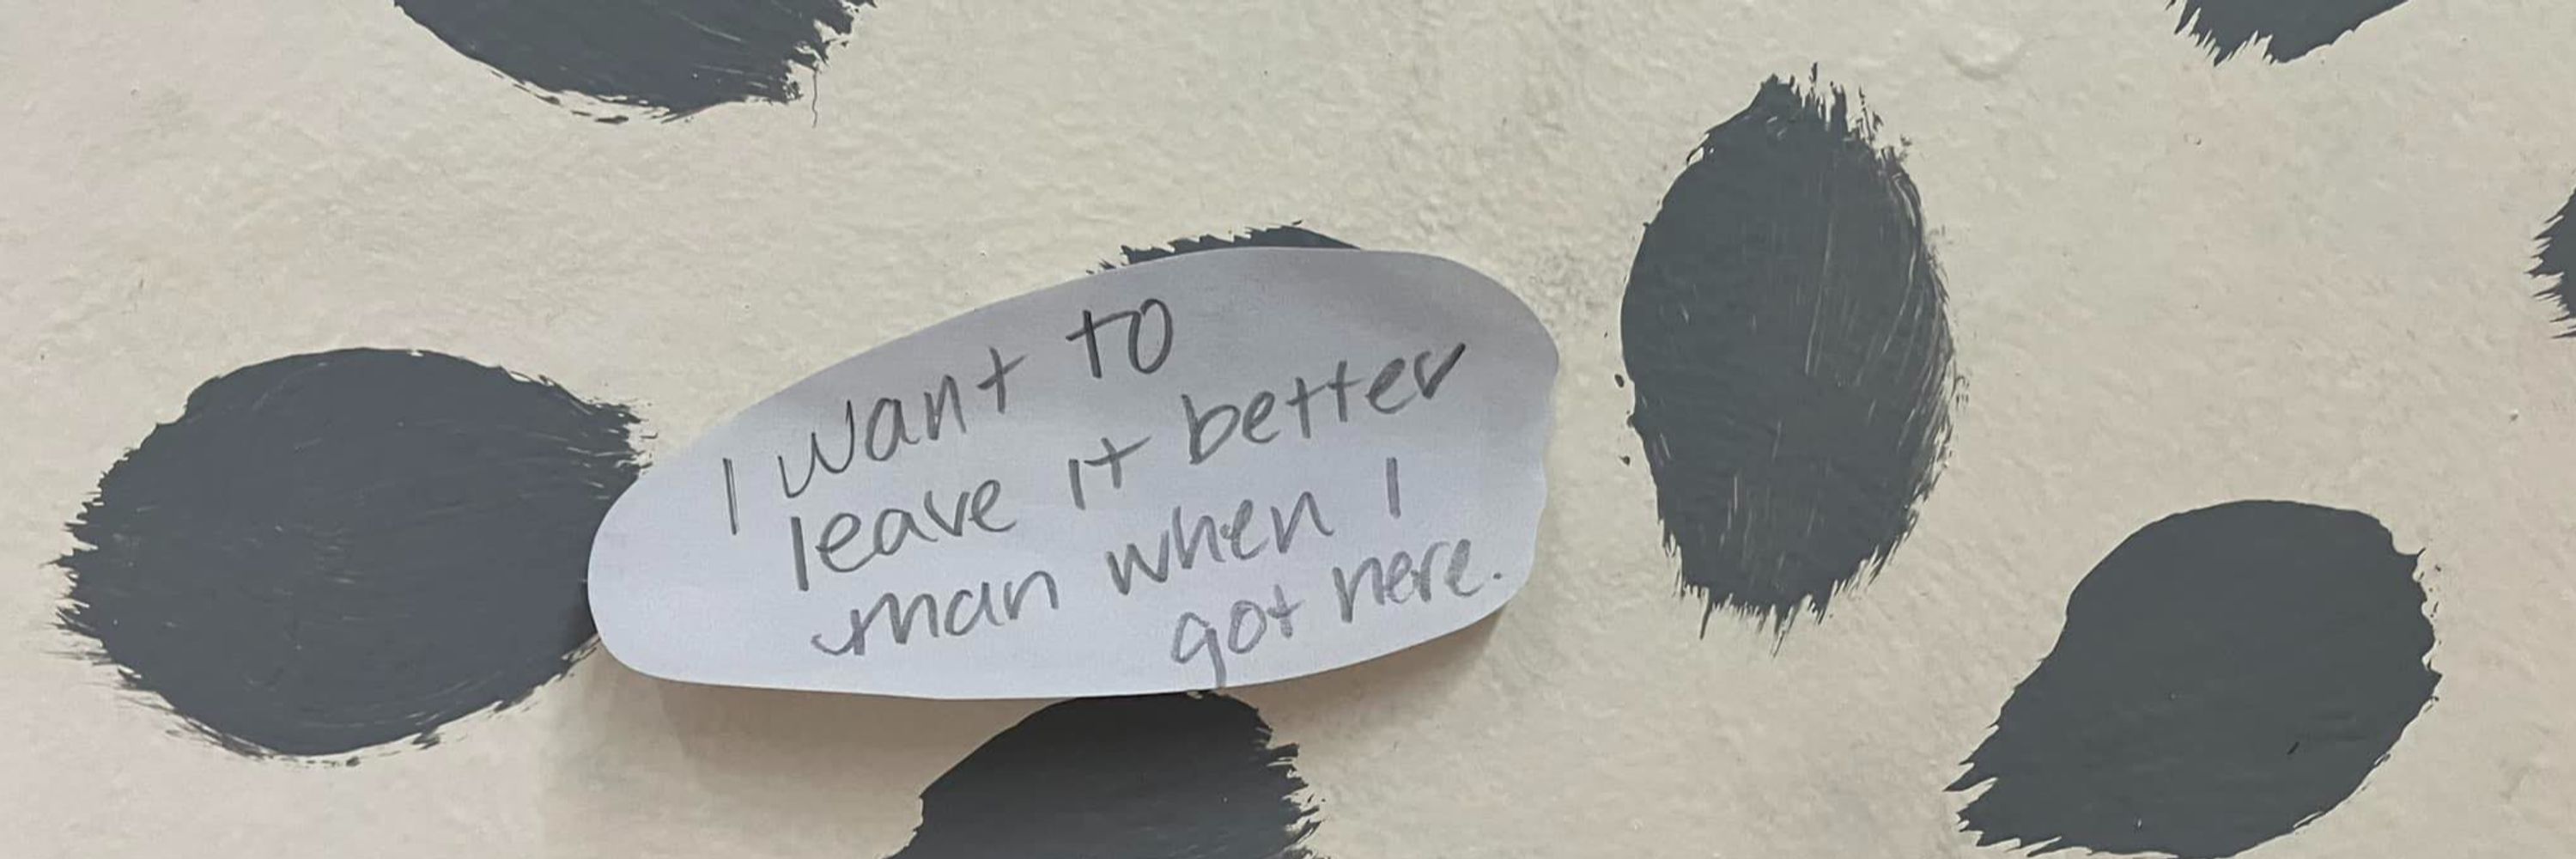 I want to
leave it better
than when I
got here.